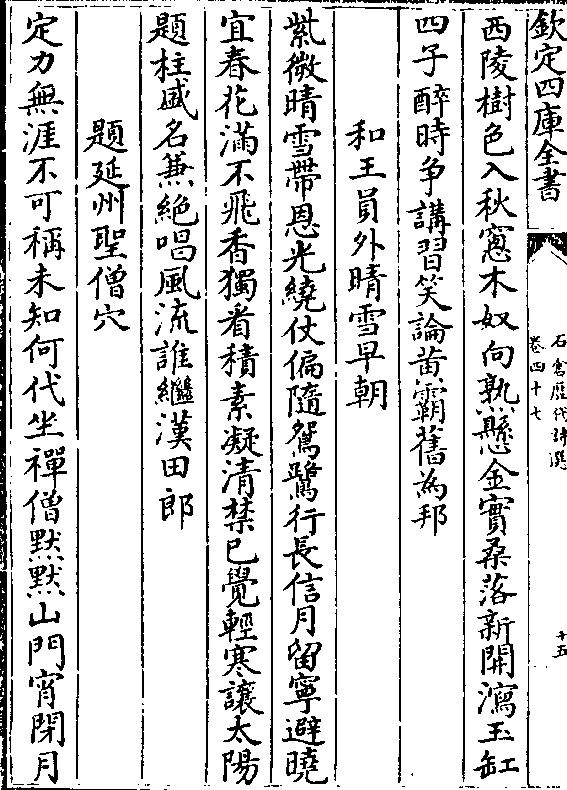 欽定四庫全書
石倉歷代詩選
卷四十七
十五
西陵樹色入秋窓木奴向熟懸金實桑落新開瀉玉缸
四子醉時争講習笑論黄霸舊為邦
和王員外晴雪早朝
紫微晴雪帶恩光繞仗偏隨鴛鷺行長信月留寧避曉
宜春花滿不飛香獨看積素凝清禁已覺輕寒讓太陽
題柱盛名兼絶唱風流誰繼漢田郎
題延州聖僧穴
定力無涯不可稱未知何代坐禪僧默默山門宵閉月